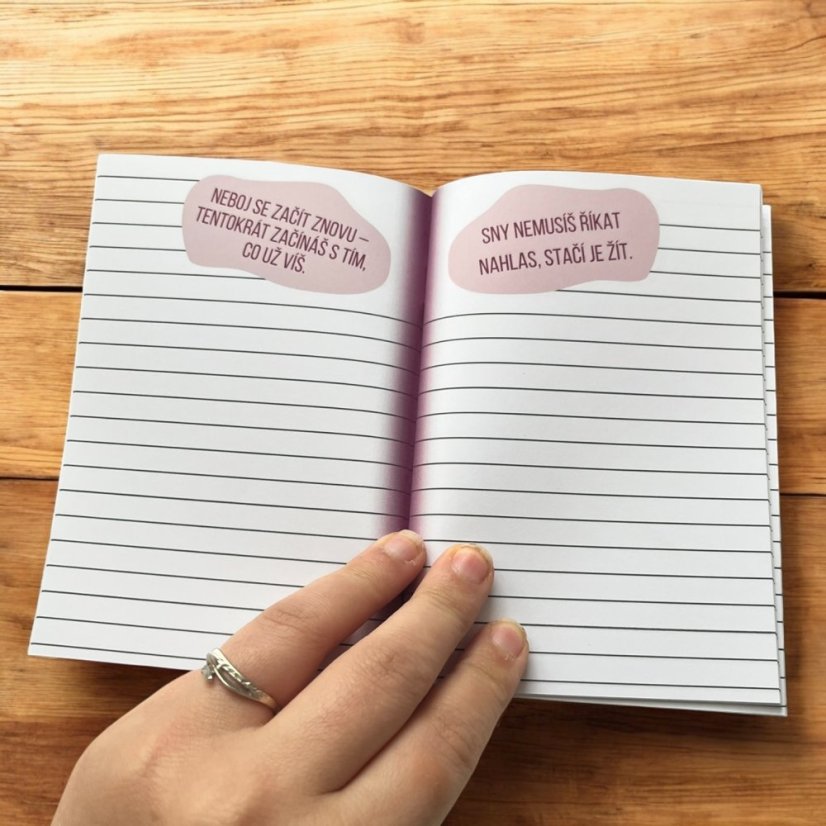 NEBOJ SE ZAČÍT ZNOVU –
TENTOKRÁT ZAČÍNÁŠ S TÍM,
CO UŽ VÍŠ.
SNY NEMUSÍŠ ŘÍKAT
NAHLAS, STAČÍ JE ŽÍT.